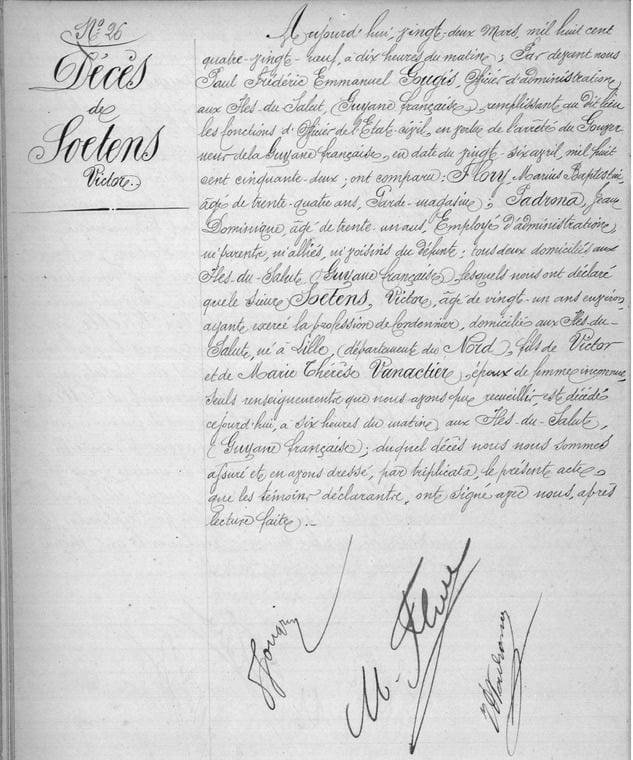 Nº 26
Décès
de
Soetens
Victor.
Aujourd'hui, vingt-deux Mars, mil huit cent
quatre-vingt-neuf, à dix heures du matin ; Par devant nous
Paul Frédéric Emmanuel Gougis, Officier d'administration
aux Iles-du-Salut, (Guyane française), remplissant au dit lieu
les fonctions d'Officier de l'Etat-civil, en vertu de l'arrêté du Gouver
neur de la Guyane française, en date du vingt-six avril, mil huit
cent cinquante-deux ; ont comparu : Flory Marius Baptistin,
âgé de trente-quatre ans, Garde-magasin ; Padrona, Jean
Dominique, âgé de trente-un ans, Employé d'administration,
ni parents, ni alliés, ni voisins du défunt ; tous deux domiciliés aux
Iles-du-Salut (Guyane française), lesquels nous ont déclaré
que le sieur Soetens, Victor, âgé de vingt-un ans environ
ayant exercé la profession de Cordonnier, domicilié aux Iles-du-
Salut, né à Lille, (département du Nord), fils de Victor
et de Marie Thérèse Vanactier, époux de femme inconnue,
seuls renseignements que nous avons pu recueillir est décédé
cejourd'hui, à six heures du matin aux Iles-du-Salut,
(Guyane française) ; duquel décès nous nous sommes
assuré et en avons dressé, par triplicata, le présent acte,
que les témoins déclarants, ont signé avec nous, après
lecture faite.-
Gougis
M. Flory